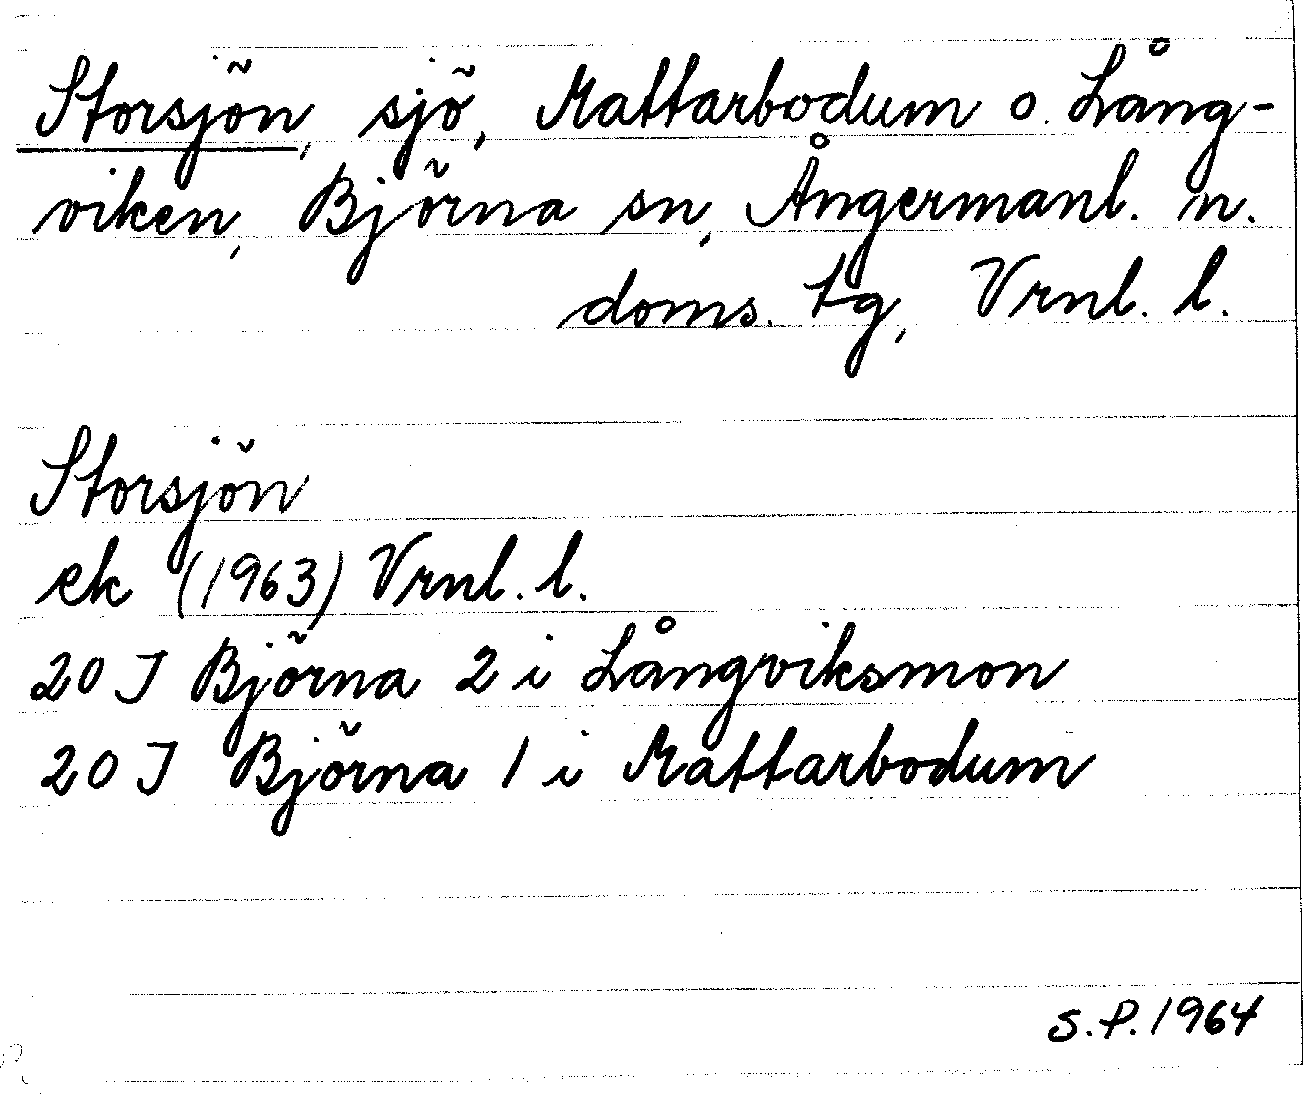 Storsjön, sjö, Mattarbodum o. Lång-
viken, Björna sn, Ångermanl. n.
doms. tg, Vrnl. l.
Storsjön
ek (1963) Vrnl. l.
20 J Björna 2 i Långviksmon
20 J Björna 1 i Mattarbodum
S.P. 1964